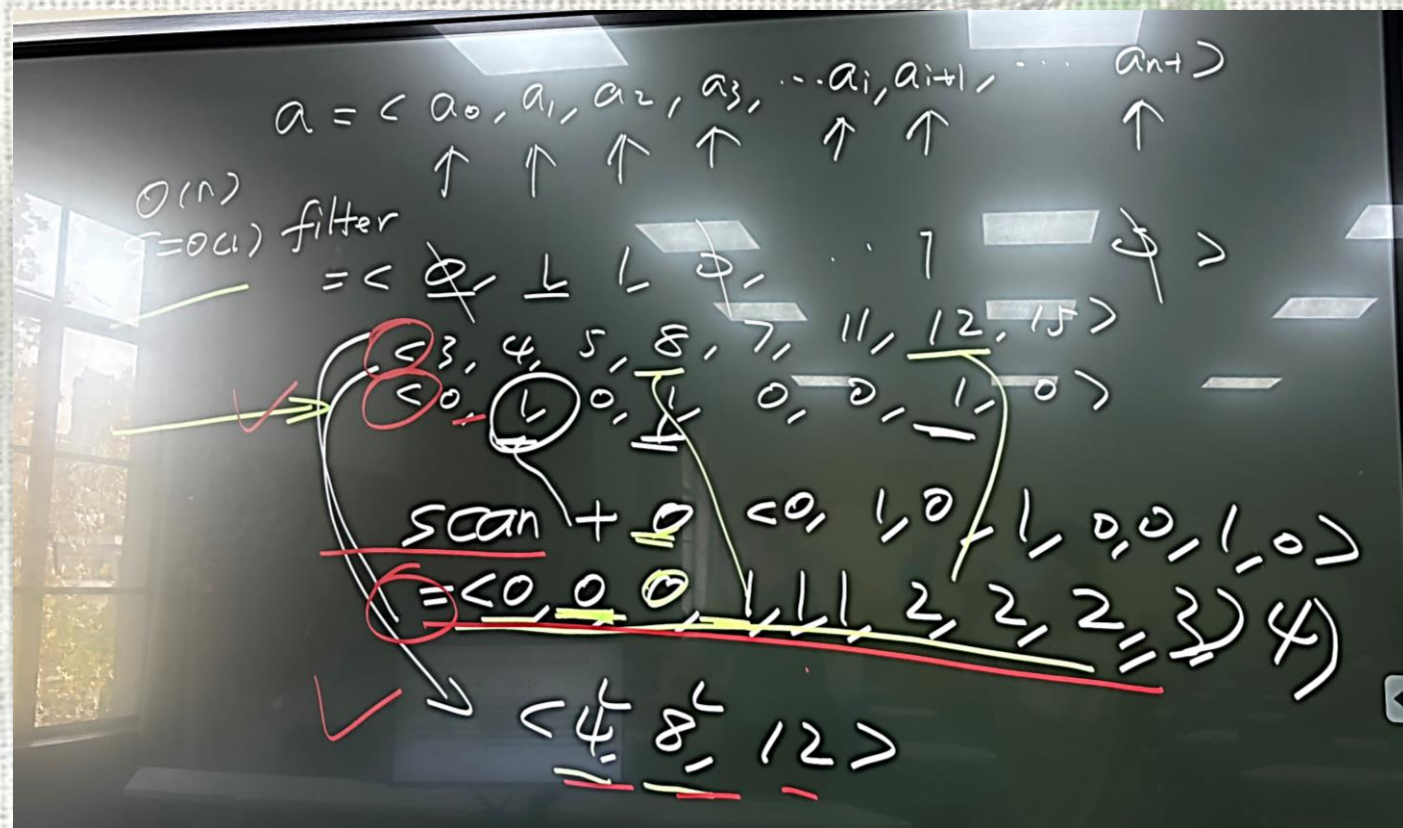 a = < a0, a1, a2, a3, ... ai, ai+1, ... an-1 >
↑ ↑ ↑ ↑ ↑ ↑ ↑
O(n)
S=O(1) filter
= < 0, 1, 1, 0, .. 1 0 >
<3, 4, 5, 8, 7, 11, 12, 15>
<0, 1, 0, 1, 0, 0, 1, 0>
scan + 0 <0, 1, 0, 1, 0, 0, 1, 0>
= <0, 0, 0, 1, 1, 1, 2, 2, 2, 3) 4)
<4, 8, 12>